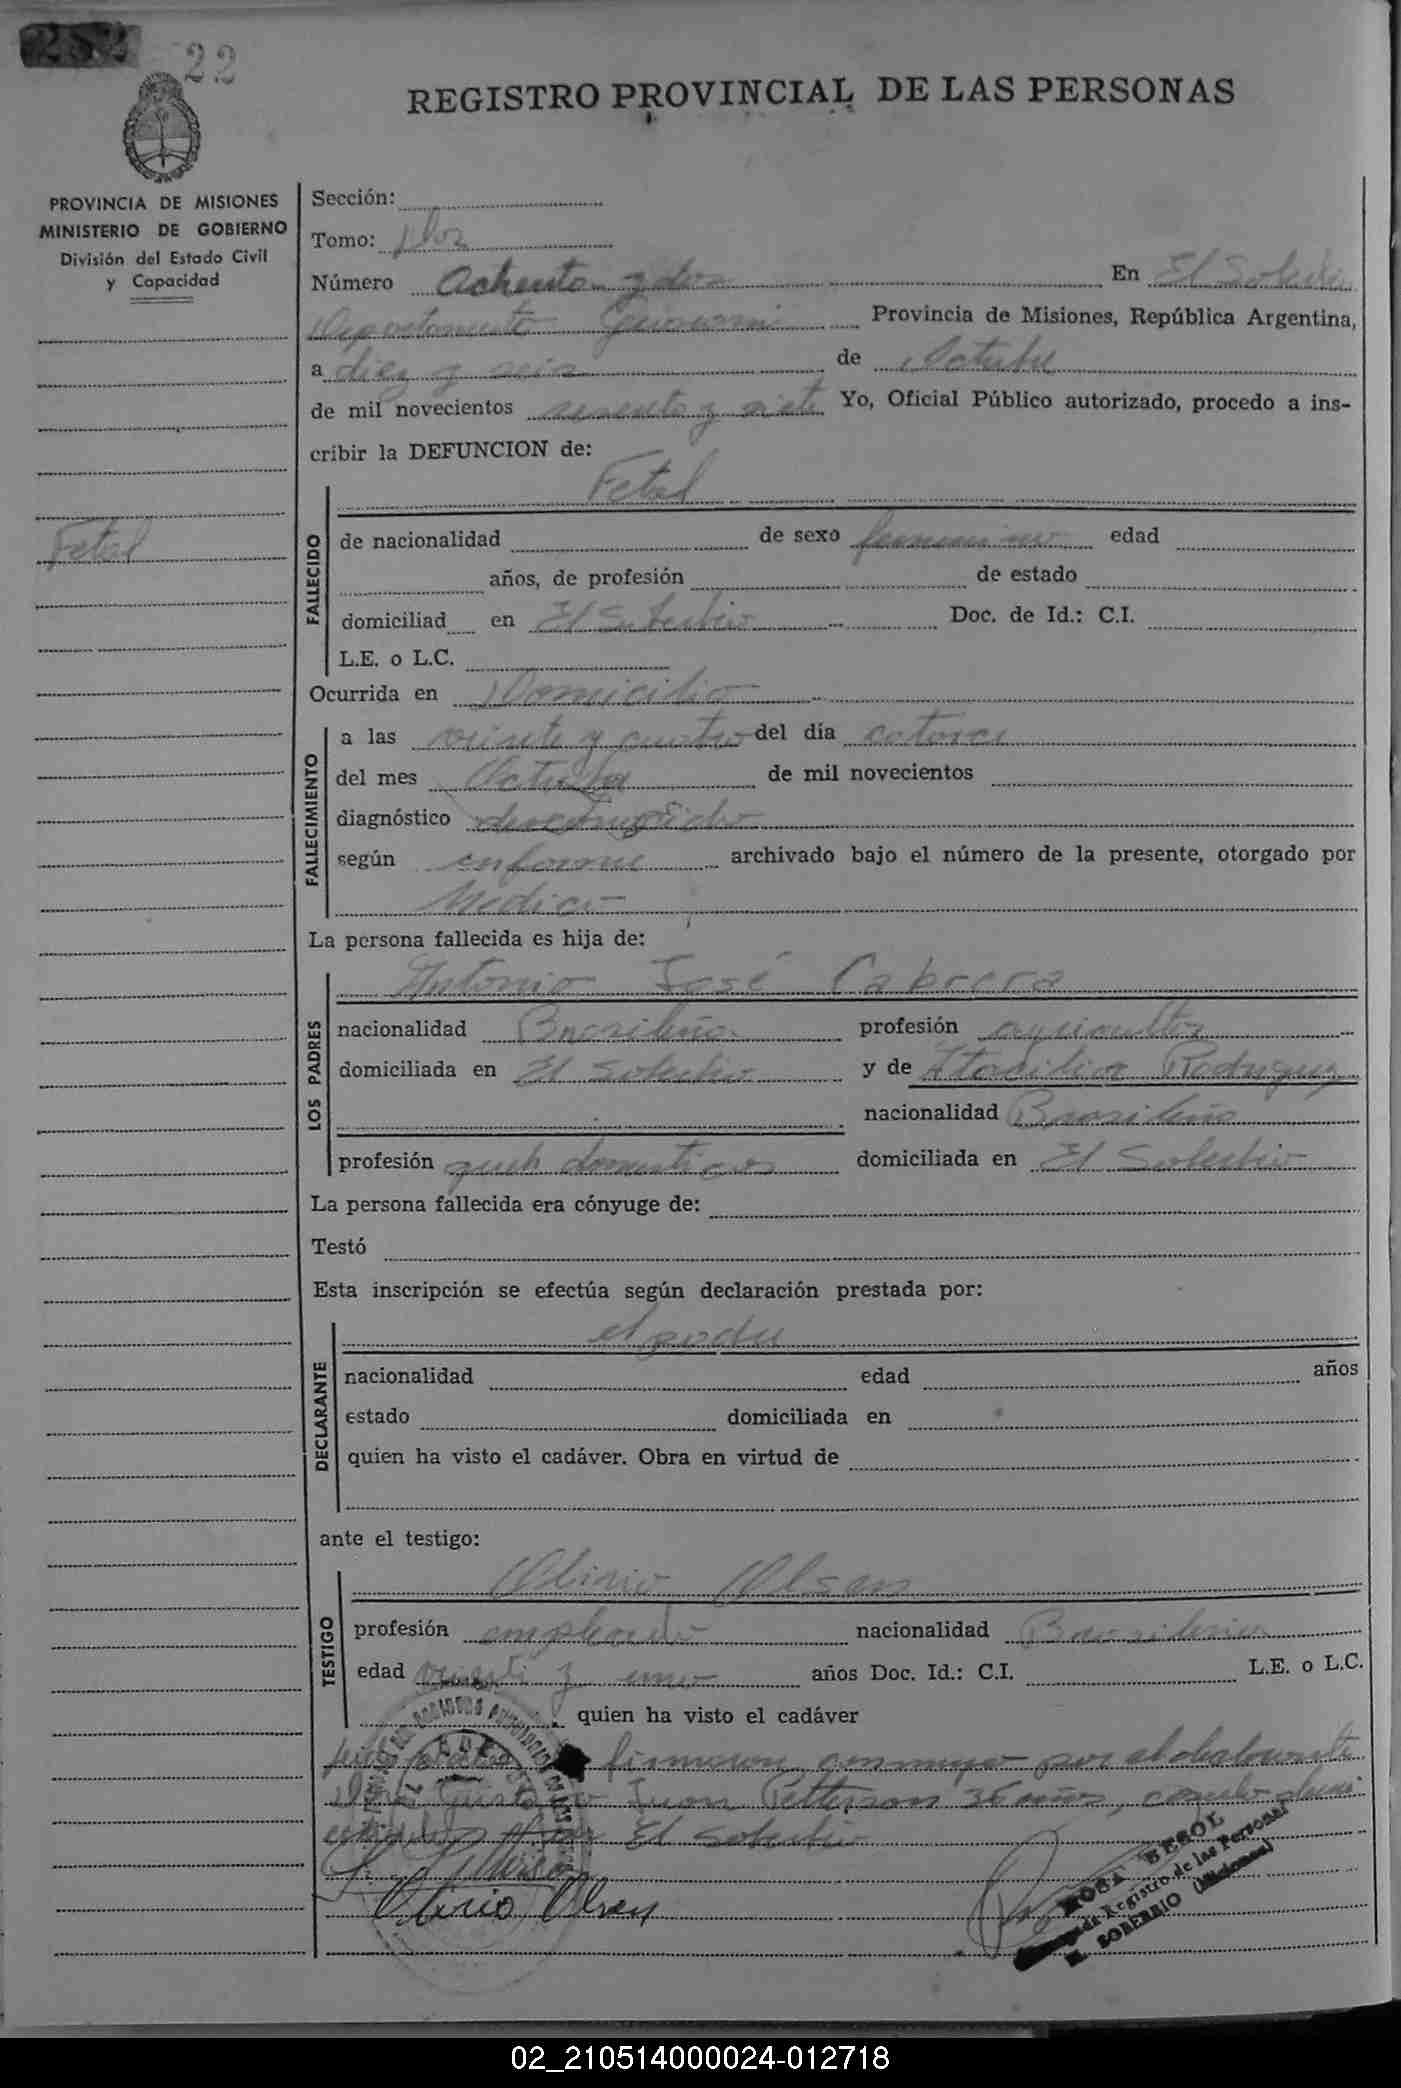 282 22
REGISTRO PROVINCIAL DE LAS PERSONAS
PROVINCIA DE MISIONES
MINISTERIO DE GOBIERNO
División del Estado Civil
y Capacidad
Sección:
Tomo: Dos
Número Ochenta y dos En El Soberbio
Departamento Guarani Provincia de Misiones, República Argentina,
a diez y seis de Octubre
de mil novecientos sesenta y siete Yo, Oficial Público autorizado, procedo a ins-
cribir la DEFUNCION de:
Fetal
Fetal
FALLECIDO
de nacionalidad de sexo femenino edad
años, de profesión de estado
domiciliad en El Soberbio Doc. de Id.: C.I.
L.E. o L.C.
Ocurrida en Domicilio
FALLECIMIENTO
a las veinte y cuatro del día catorce
del mes Octubre de mil novecientos
diagnóstico desconocido
según informe archivado bajo el número de la presente, otorgado por
Medico
La persona fallecida es hija de:
LOS PADRES
Antonio José Cabrera
nacionalidad Brasileño profesión agricultor
domiciliada en El Soberbio y de Rodriguez
nacionalidad Brasileño
profesión domesticos domiciliada en El Soberbio
La persona fallecida era cónyuge de:
Testó
Esta inscripción se efectúa según declaración prestada por:
DECLARANTE
el padre
nacionalidad edad años
estado domiciliada en
quien ha visto el cadáver. Obra en virtud de
ante el testigo:
TESTIGO
Olirio Olsen
profesión empleado nacionalidad Brasilero
edad veinti y uno años Doc. Id.: C.I. L.E. o L.C.
quien ha visto el cadáver
firmaron conmigo por el declarante
Juan Petterson 36 años,
El Soberbio
Olirio Olsen
ROSA BESOL
Encargada Registro de las Personas
EL SOBERBIO (Misiones)
02_210514000024-012718